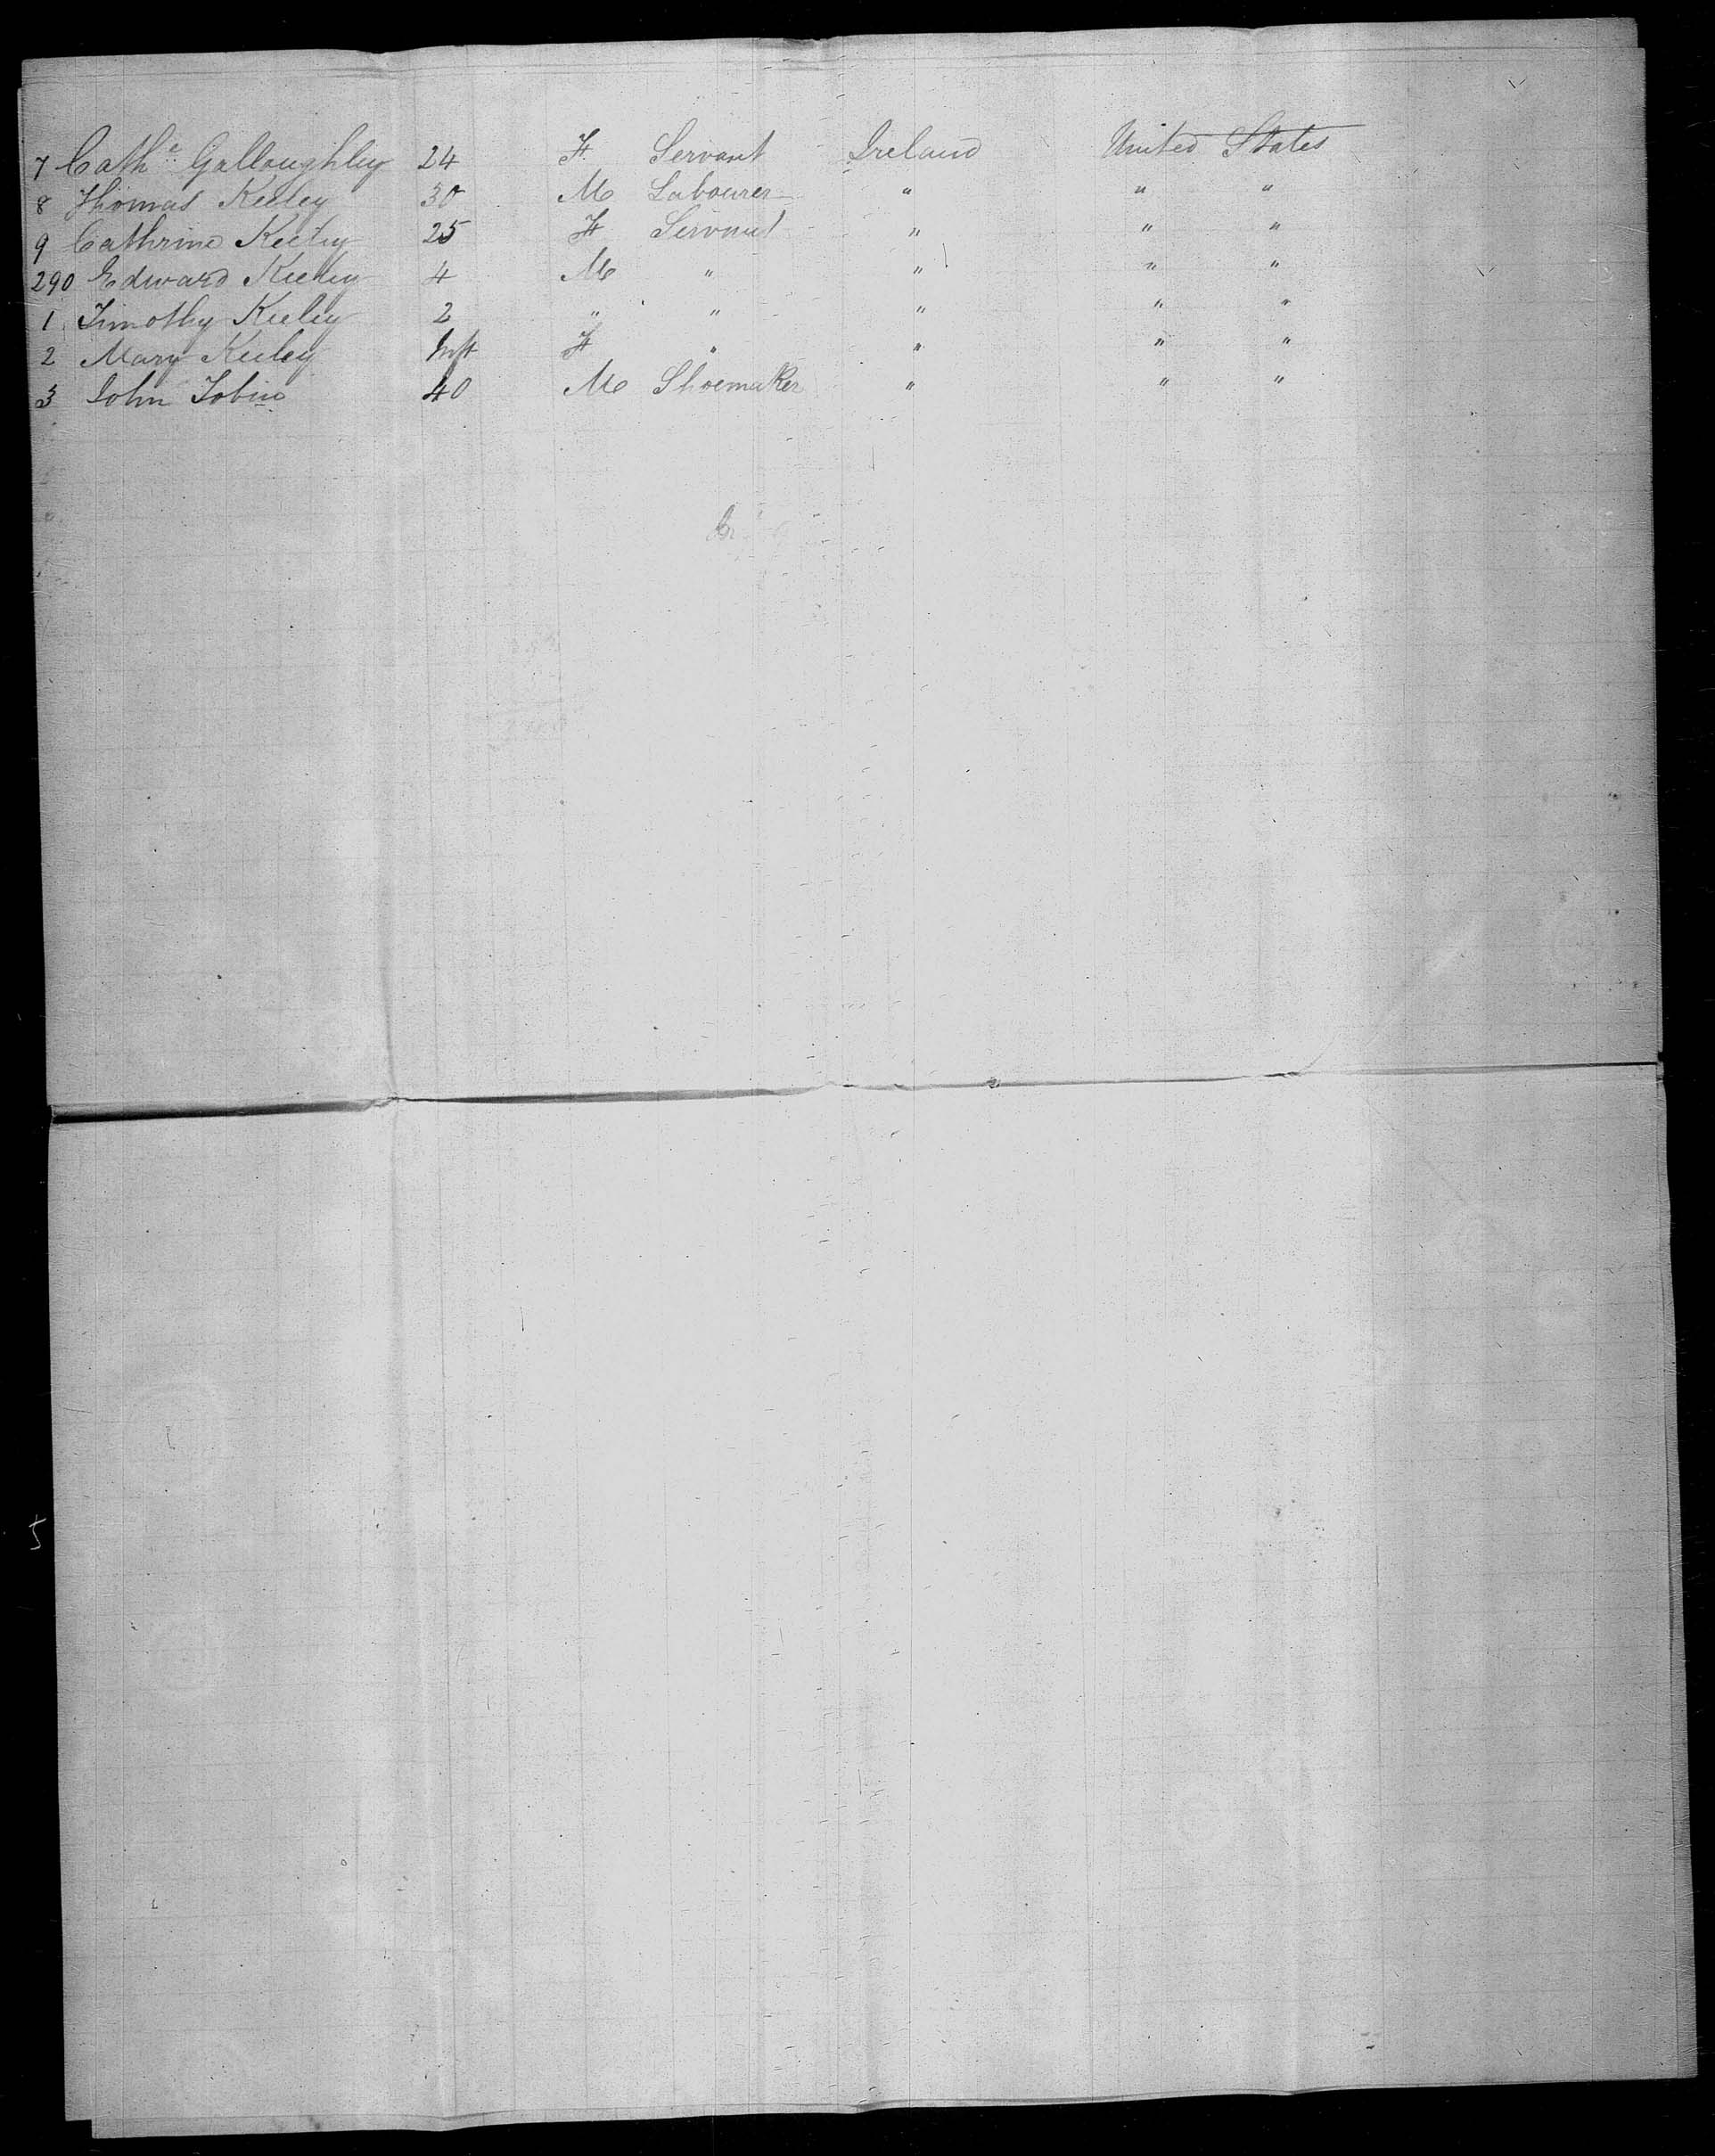 7 Cathe Galloughley 24 F. Servant Ireland United States
8 Thomas Keeley 30 M Labourer " " "
9 Cathrine Keeley 25 F Servant " " "
290 Edward Keeley 4 M " " " "
1 Timothy Keeley 2 " " " " "
2 Mary Keeley Inft F " " " "
3 John Tobin 40 M Shoemaker " " "